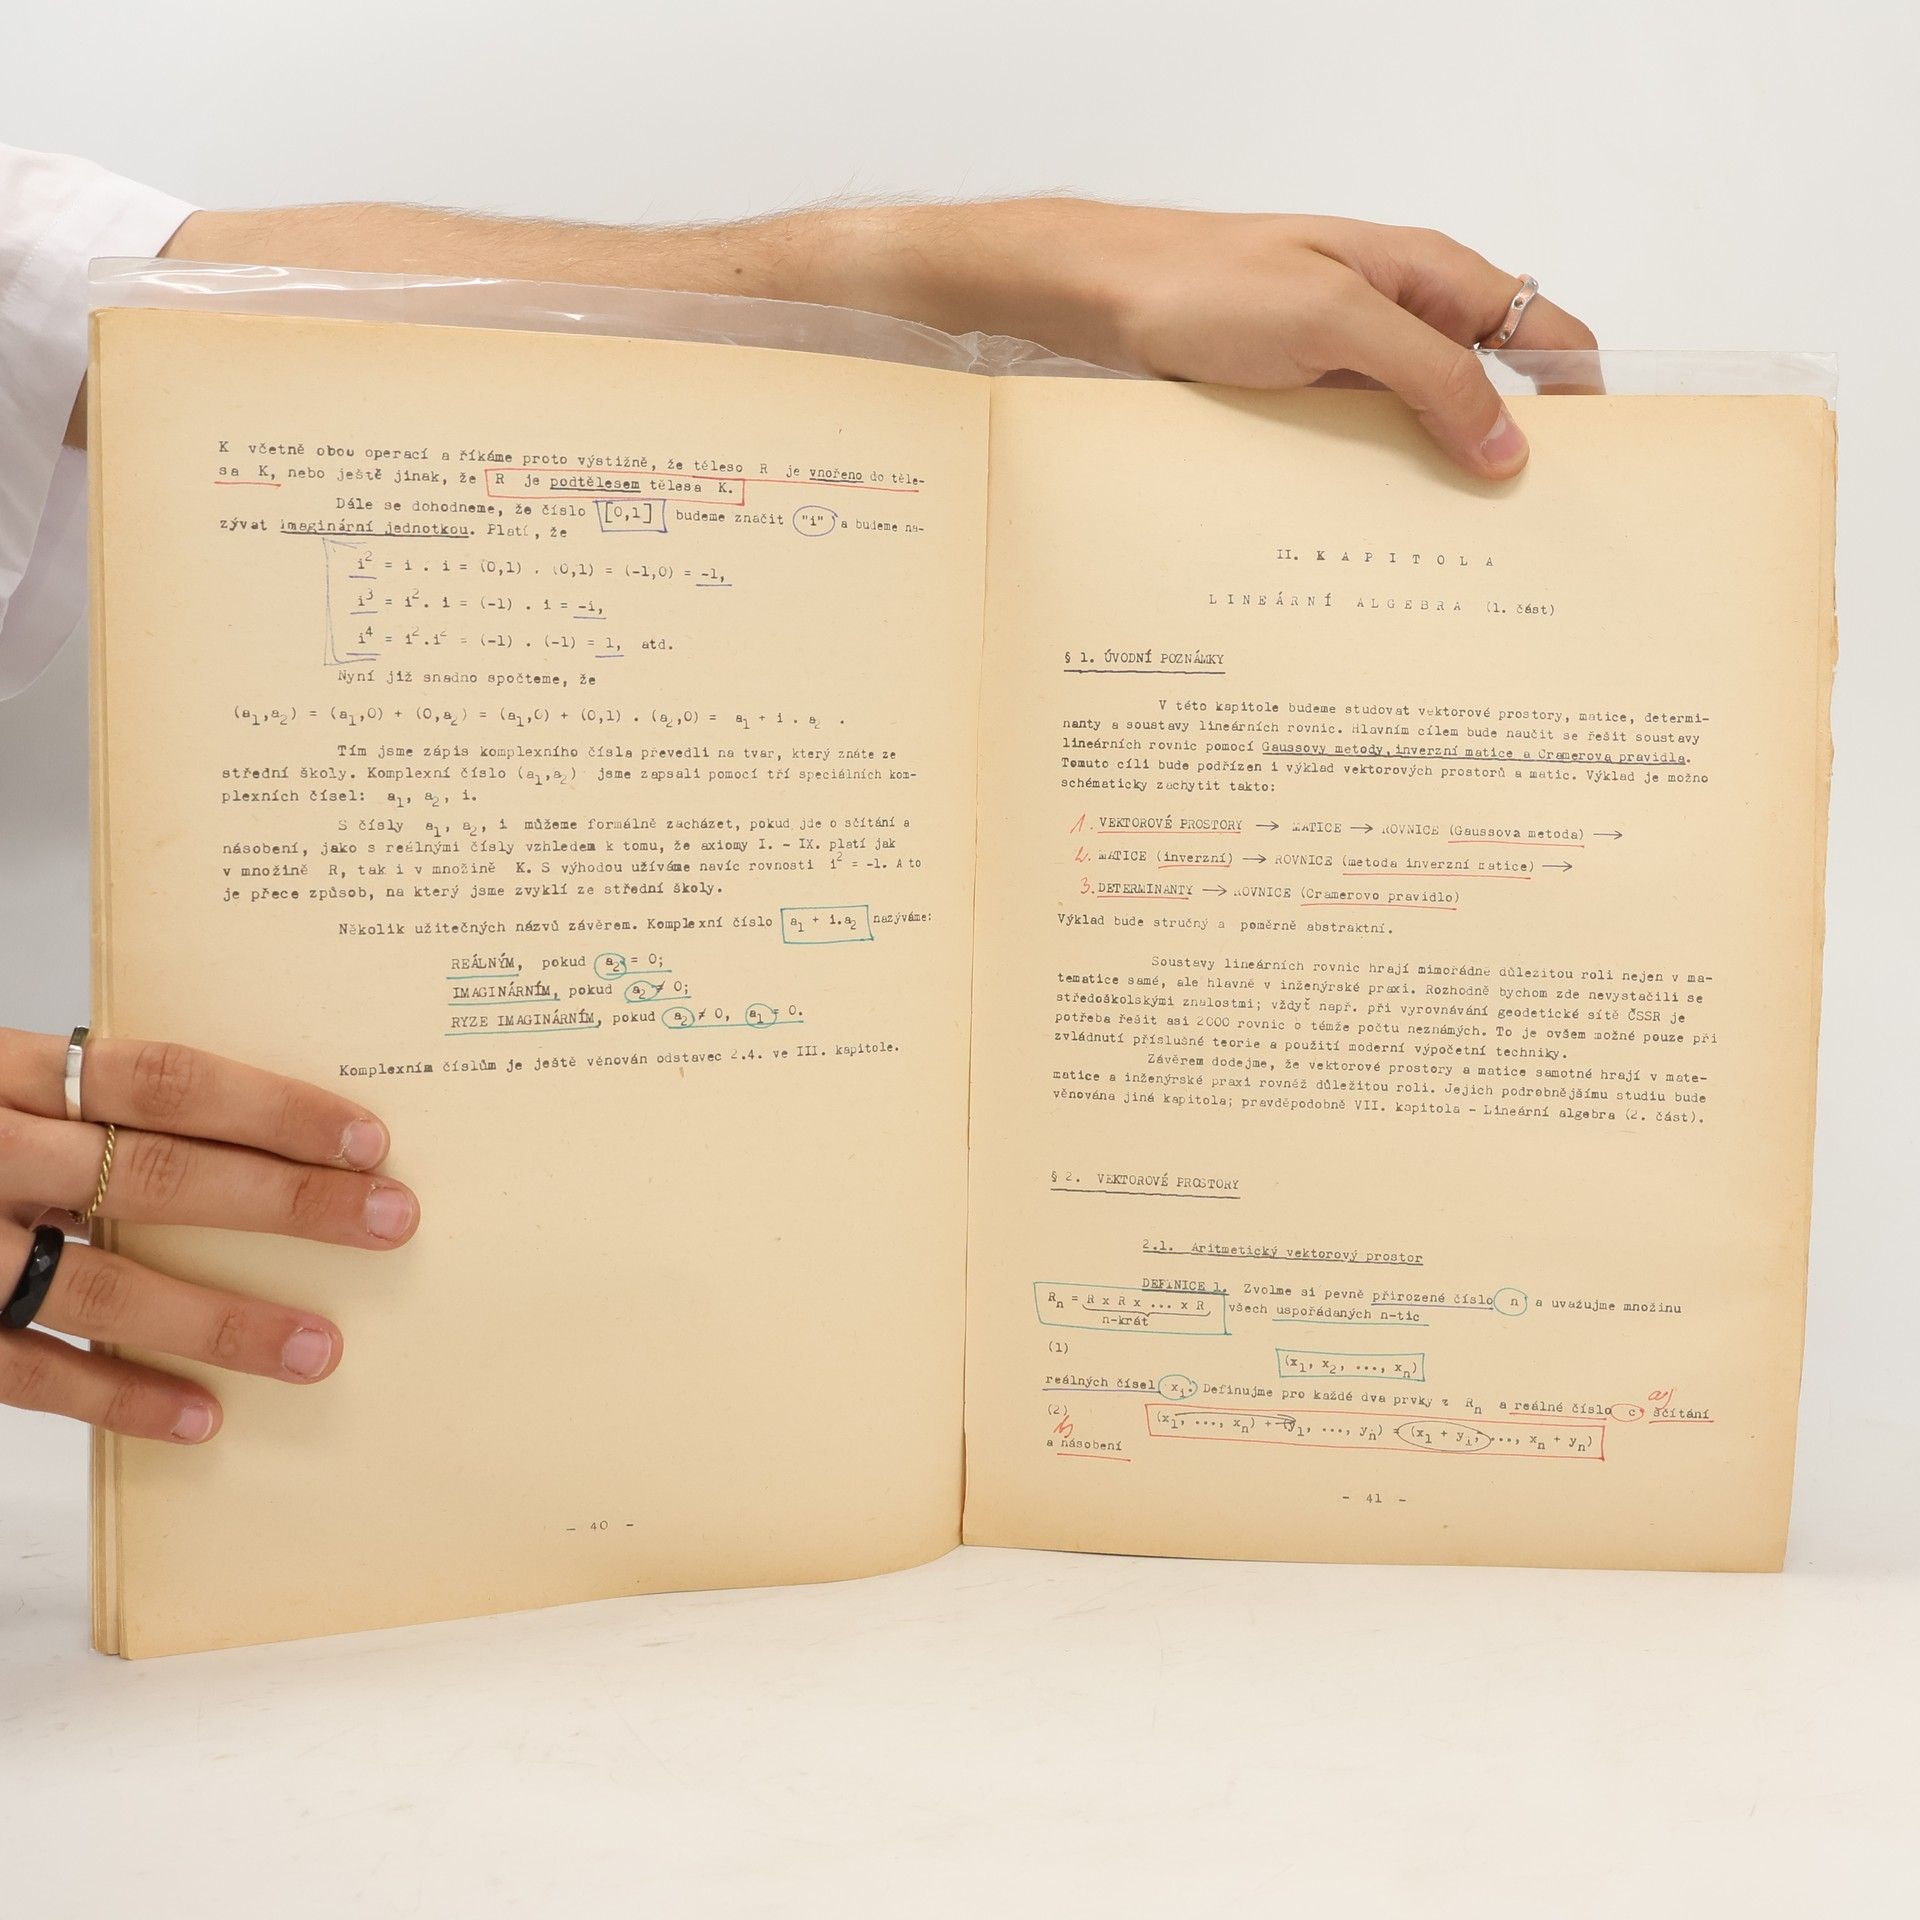 K včetně obou operací a říkáme proto výstižně, že těleso R je vnořeno do těle-
sa K, nebo ještě jinak, že R je podtělesem tělesa K.
Dále se dohodneme, že číslo [0,1] budeme značit "i" a budeme na-
zývat imaginární jednotkou. Platí, že
i² = i . i = (0,1) . (0,1) = (-1,0) = -1,
i³ = i². i = (-1) . i = -i,
i⁴ = i².i² = (-1) . (-1) = 1, atd.
Nyní již snadno spočteme, že
(a₁,a₂) = (a₁,0) + (0,a₂) = (a₁,0) + (0,1) . (a₂,0) = a₁ + i . a₂ .
Tím jsme zápis komplexního čísla převedli na tvar, který znáte ze
střední školy. Komplexní číslo (a₁,a₂) jsme zapsali pomocí tří speciálních kom-
plexních čísel: a₁, a₂, i.
S čísly a₁, a₂, i můžeme formálně zacházet, pokud jde o sčítání a
násobení, jako s reálnými čísly vzhledem k tomu, že axiomy I. - IX. platí jak
v množině R, tak i v množině K. S výhodou užíváme navíc rovnosti i² = -1. A to
je přece způsob, na který jsme zvyklí ze střední školy.
Několik užitečných názvů závěrem. Komplexní číslo a₁ + i.a₂ nazýváme:
REÁLNÝM, pokud a₂ = 0;
IMAGINÁRNÍM, pokud a₂ ≠ 0;
RYZE IMAGINÁRNÍM, pokud a₂ ≠ 0, a₁ = 0.
Komplexním číslům je ještě věnován odstavec 2.4. ve III. kapitole.
- 40 -
II. KAPITOLA
LINEÁRNÍ ALGEBRA (1. část)
§ 1. ÚVODNÍ POZNÁMKY
V této kapitole budeme studovat vektorové prostory, matice, determi-
nanty a soustavy lineárních rovnic. Hlavním cílem bude naučit se řešit soustavy
lineárních rovnic pomocí Gaussovy metody, inverzní matice a Cramerova pravidla.
Tomuto cíli bude podřízen i výklad vektorových prostorů a matic. Výklad je možno
schématicky zachytit takto:
1. VEKTOROVÉ PROSTORY → MATICE → ROVNICE (Gaussova metoda) →
2. MATICE (inverzní) → ROVNICE (metoda inverzní matice) →
3. DETERMINANTY → ROVNICE (Cramerovo pravidlo)
Výklad bude stručný a poměrně abstraktní.
Soustavy lineárních rovnic hrají mimořádně důležitou roli nejen v ma-
tematice samé, ale hlavně v inženýrské praxi. Rozhodně bychom zde nevystačili se
středoškolskými znalostmi; vždyť např. při vyrovnávání geodetické sítě ČSSR je
potřeba řešit asi 2000 rovnic o témže počtu neznámých. To je ovšem možné pouze při
zvládnutí příslušné teorie a použití moderní výpočetní techniky.
Závěrem dodejme, že vektorové prostory a matice samotné hrají v mate-
matice a inženýrské praxi rovněž důležitou roli. Jejich podrobnějšímu studiu bude
věnována jiná kapitola; pravděpodobně VII. kapitola - Lineární algebra (2. část).
§ 2. VEKTOROVÉ PROSTORY
2.1. Aritmetický vektorový prostor
DEFINICE 1. Zvolme si pevně přirozené číslo n a uvažujme množinu
Rₙ = R x R x ... x R všech uspořádaných n-tic
n-krát
(1) (x₁, x₂, ..., xₙ)
reálných čísel xᵢ. Definujme pro každé dva prvky z Rₙ a reálné číslo c a) sčítání
(2) (x₁, ..., xₙ) + (y₁, ..., yₙ) = (x₁ + y₁, ..., xₙ + yₙ)
b)
a násobení
- 41 -